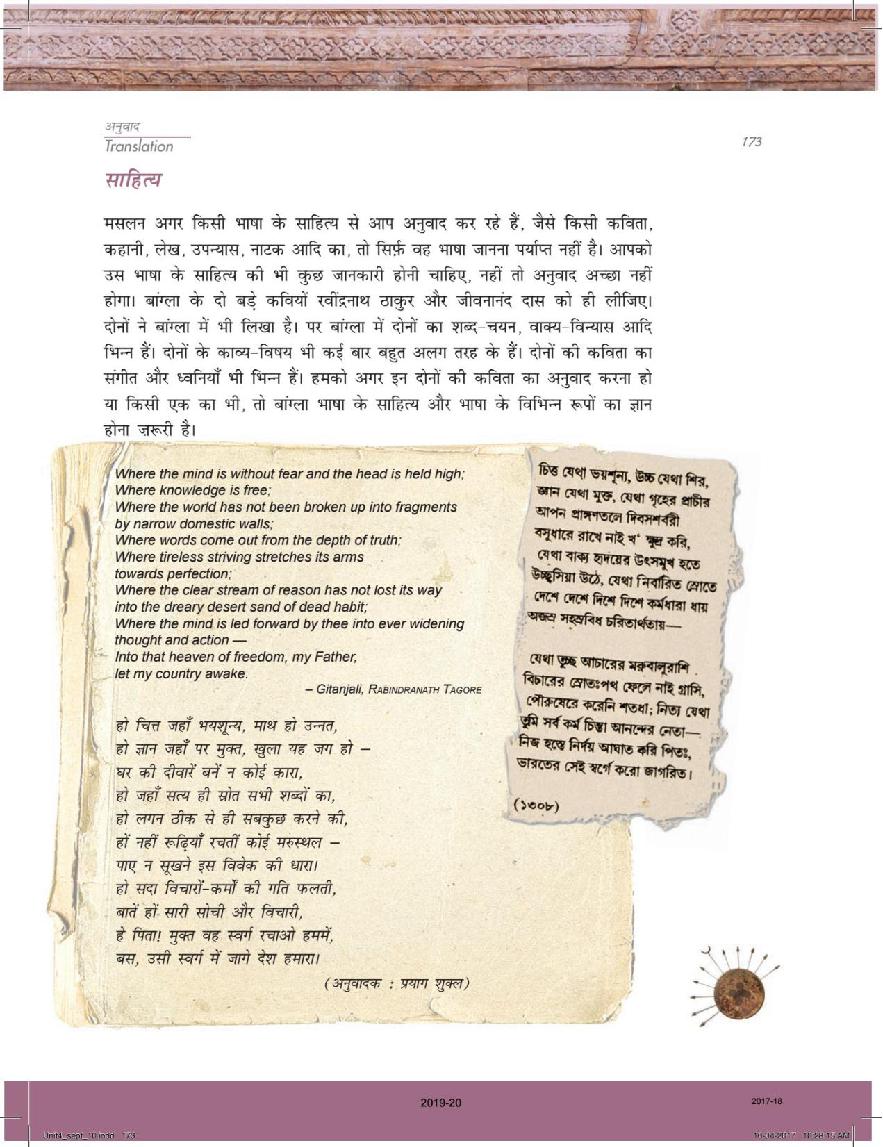 अनुवाद
Translation
173
साहित्य
मसलन अगर किसी भाषा के साहित्य से आप अनुवाद कर रहे हैं, जैसे किसी कविता,
कहानी, लेख, उपन्यास, नाटक आदि का, तो सिर्फ़ वह भाषा जानना पर्याप्त नहीं है। आपको
उस भाषा के साहित्य की भी कुछ जानकारी होनी चाहिए, नहीं तो अनुवाद अच्छा नहीं
होगा। बांग्ला के दो बड़े कवियों रवींद्रनाथ ठाकुर और जीवनानंद दास को ही लीजिए।
दोनों ने बांग्ला में भी लिखा है। पर बांग्ला में दोनों का शब्द-चयन, वाक्य-विन्यास आदि
भिन्न हैं। दोनों के काव्य-विषय भी कई बार बहुत अलग तरह के हैं। दोनों की कविता का
संगीत और ध्वनियाँ भी भिन्न हैं। हमको अगर इन दोनों की कविता का अनुवाद करना हो
या किसी एक का भी, तो बांग्ला भाषा के साहित्य और भाषा के विभिन्न रूपों का ज्ञान
होना ज़रूरी है।
Where the mind is without fear and the head is held high;
Where knowledge is free;
Where the world has not been broken up into fragments
by narrow domestic walls;
Where words come out from the depth of truth;
Where tireless striving stretches its arms
towards perfection;
Where the clear stream of reason has not lost its way
into the dreary desert sand of dead habit;
Where the mind is led forward by thee into ever widening
thought and action —
Into that heaven of freedom, my Father,
let my country awake.
– Gitanjali, RABINDRANATH TAGORE
हो चित्त जहाँ भयशून्य, माथ हो उन्नत,
हो ज्ञान जहाँ पर मुक्त, खुला यह जग हो –
घर की दीवारें बनें न कोई कारा,
हो जहाँ सत्य ही स्रोत सभी शब्दों का,
हो लगन ठीक से ही सबकुछ करने की,
हों नहीं रूढ़ियाँ रचतीं कोई मरुस्थल –
पाए न सूखने इस विवेक की धारा।
हो सदा विचारों-कर्मों की गति फलती,
बातें हों सारी सोची और विचारी,
हे पिता! मुक्त वह स्वर्ग रचाओ हममें,
बस, उसी स्वर्ग में जागे देश हमारा।
(अनुवादक : प्रयाग शुक्ल)
চিত্ত যেথা ভয়শূন্য, উচ্চ যেথা শির,
জ্ঞান যেথা মুক্ত, যেথা গৃহের প্রাচীর
আপন প্রাঙ্গণতলে দিবসশর্বরী
বসুধারে রাখে নাই খ ক্ষুদ্র করি,
যেথা বাক্য হৃদয়ের উৎসমুখ হতে
উচ্ছ্বসিয়া উঠে, যেথা নির্বারিত স্রোতে
দেশে দেশে দিশে দিশে কর্মধারা ধায়
অজস্র সহস্রবিধ চরিতার্থতায়—
যেথা তুচ্ছ আচারের মরুবালুরাশি
বিচারের স্রোতঃপথ ফেলে নাই গ্রাসি,
পৌরুষেরে করেনি শতধা; নিত্য যেথা
তুমি সর্ব কর্ম চিন্তা আনন্দের নেতা—
নিজ হস্তে নির্দয় আঘাত করি পিতঃ,
ভারতের সেই স্বর্গে করো জাগরিত।
(১৩০৮)
2019-20
2017-18
Unit4_sept_10.indd 173